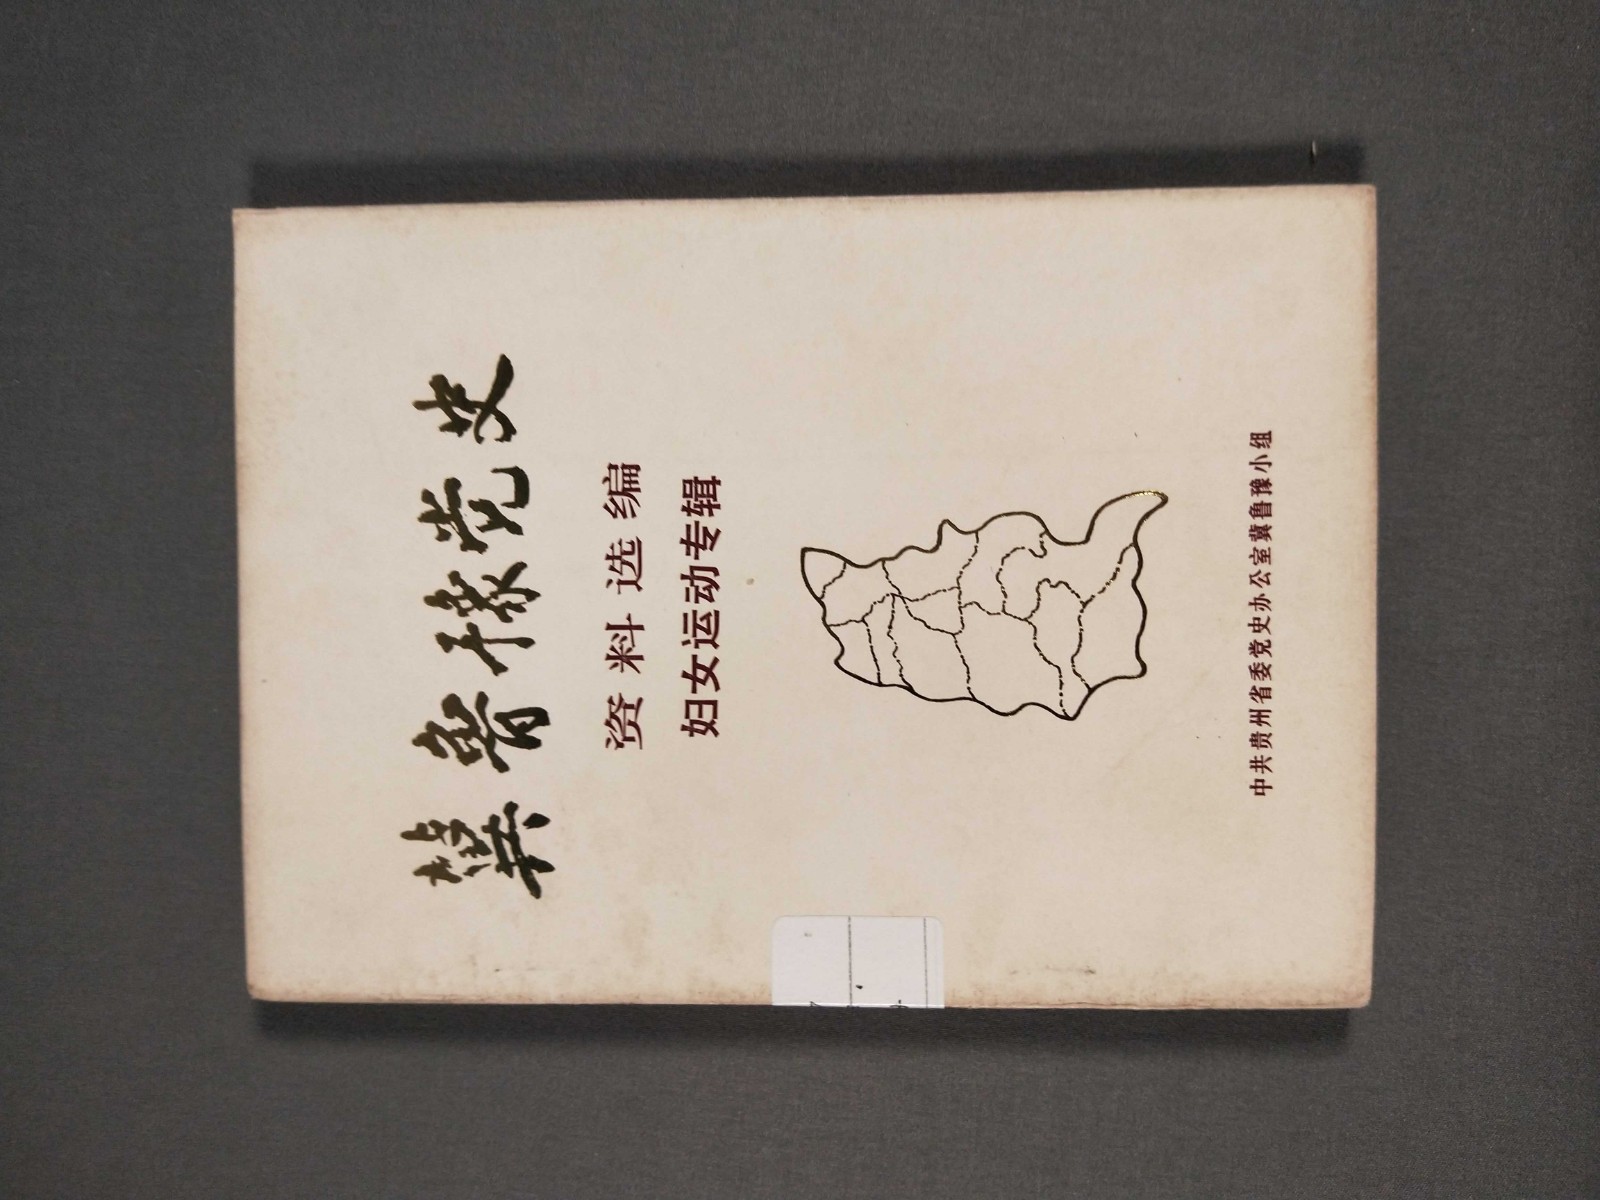 冀鲁豫党史
资料选编
妇女运动专辑
中共贵州省委党史办公室冀鲁豫小组